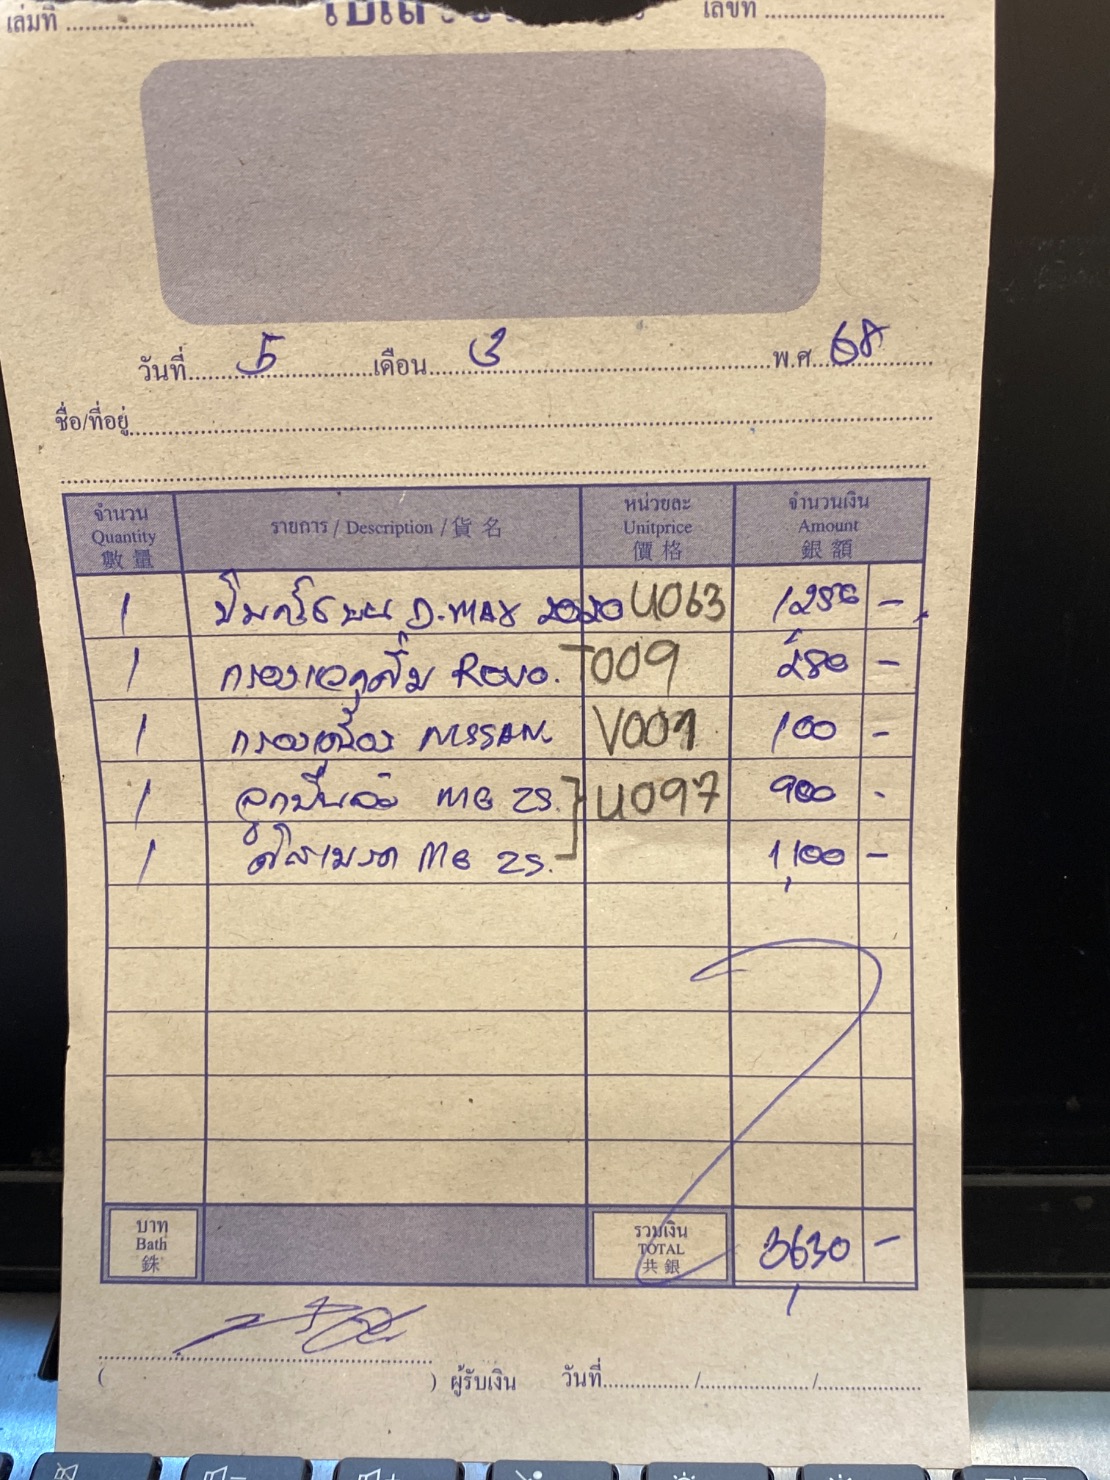 เล่มที่ เลขที่
วันที่ 5 เดือน 3 พ.ศ. 68
ชื่อ/ที่อยู่
จำนวน รายการ / Description / 貨名 หน่วยละ จำนวนเงิน
Quantity Unitprice Amount
數量 價格 銀額
1 D.MAX 2020 U063 1250 -
1 กรอง Revo. T009 280 -
1 กรองเครื่อง NISSAN. V001 100 -
1 ลูกปืนล้อ MG ZS. U097 900 -
1 MG ZS. 1,100 -
บาท รวมเงิน
Bath TOTAL 3,630 -
銖 共銀
( ) ผู้รับเงิน วันที่ / /